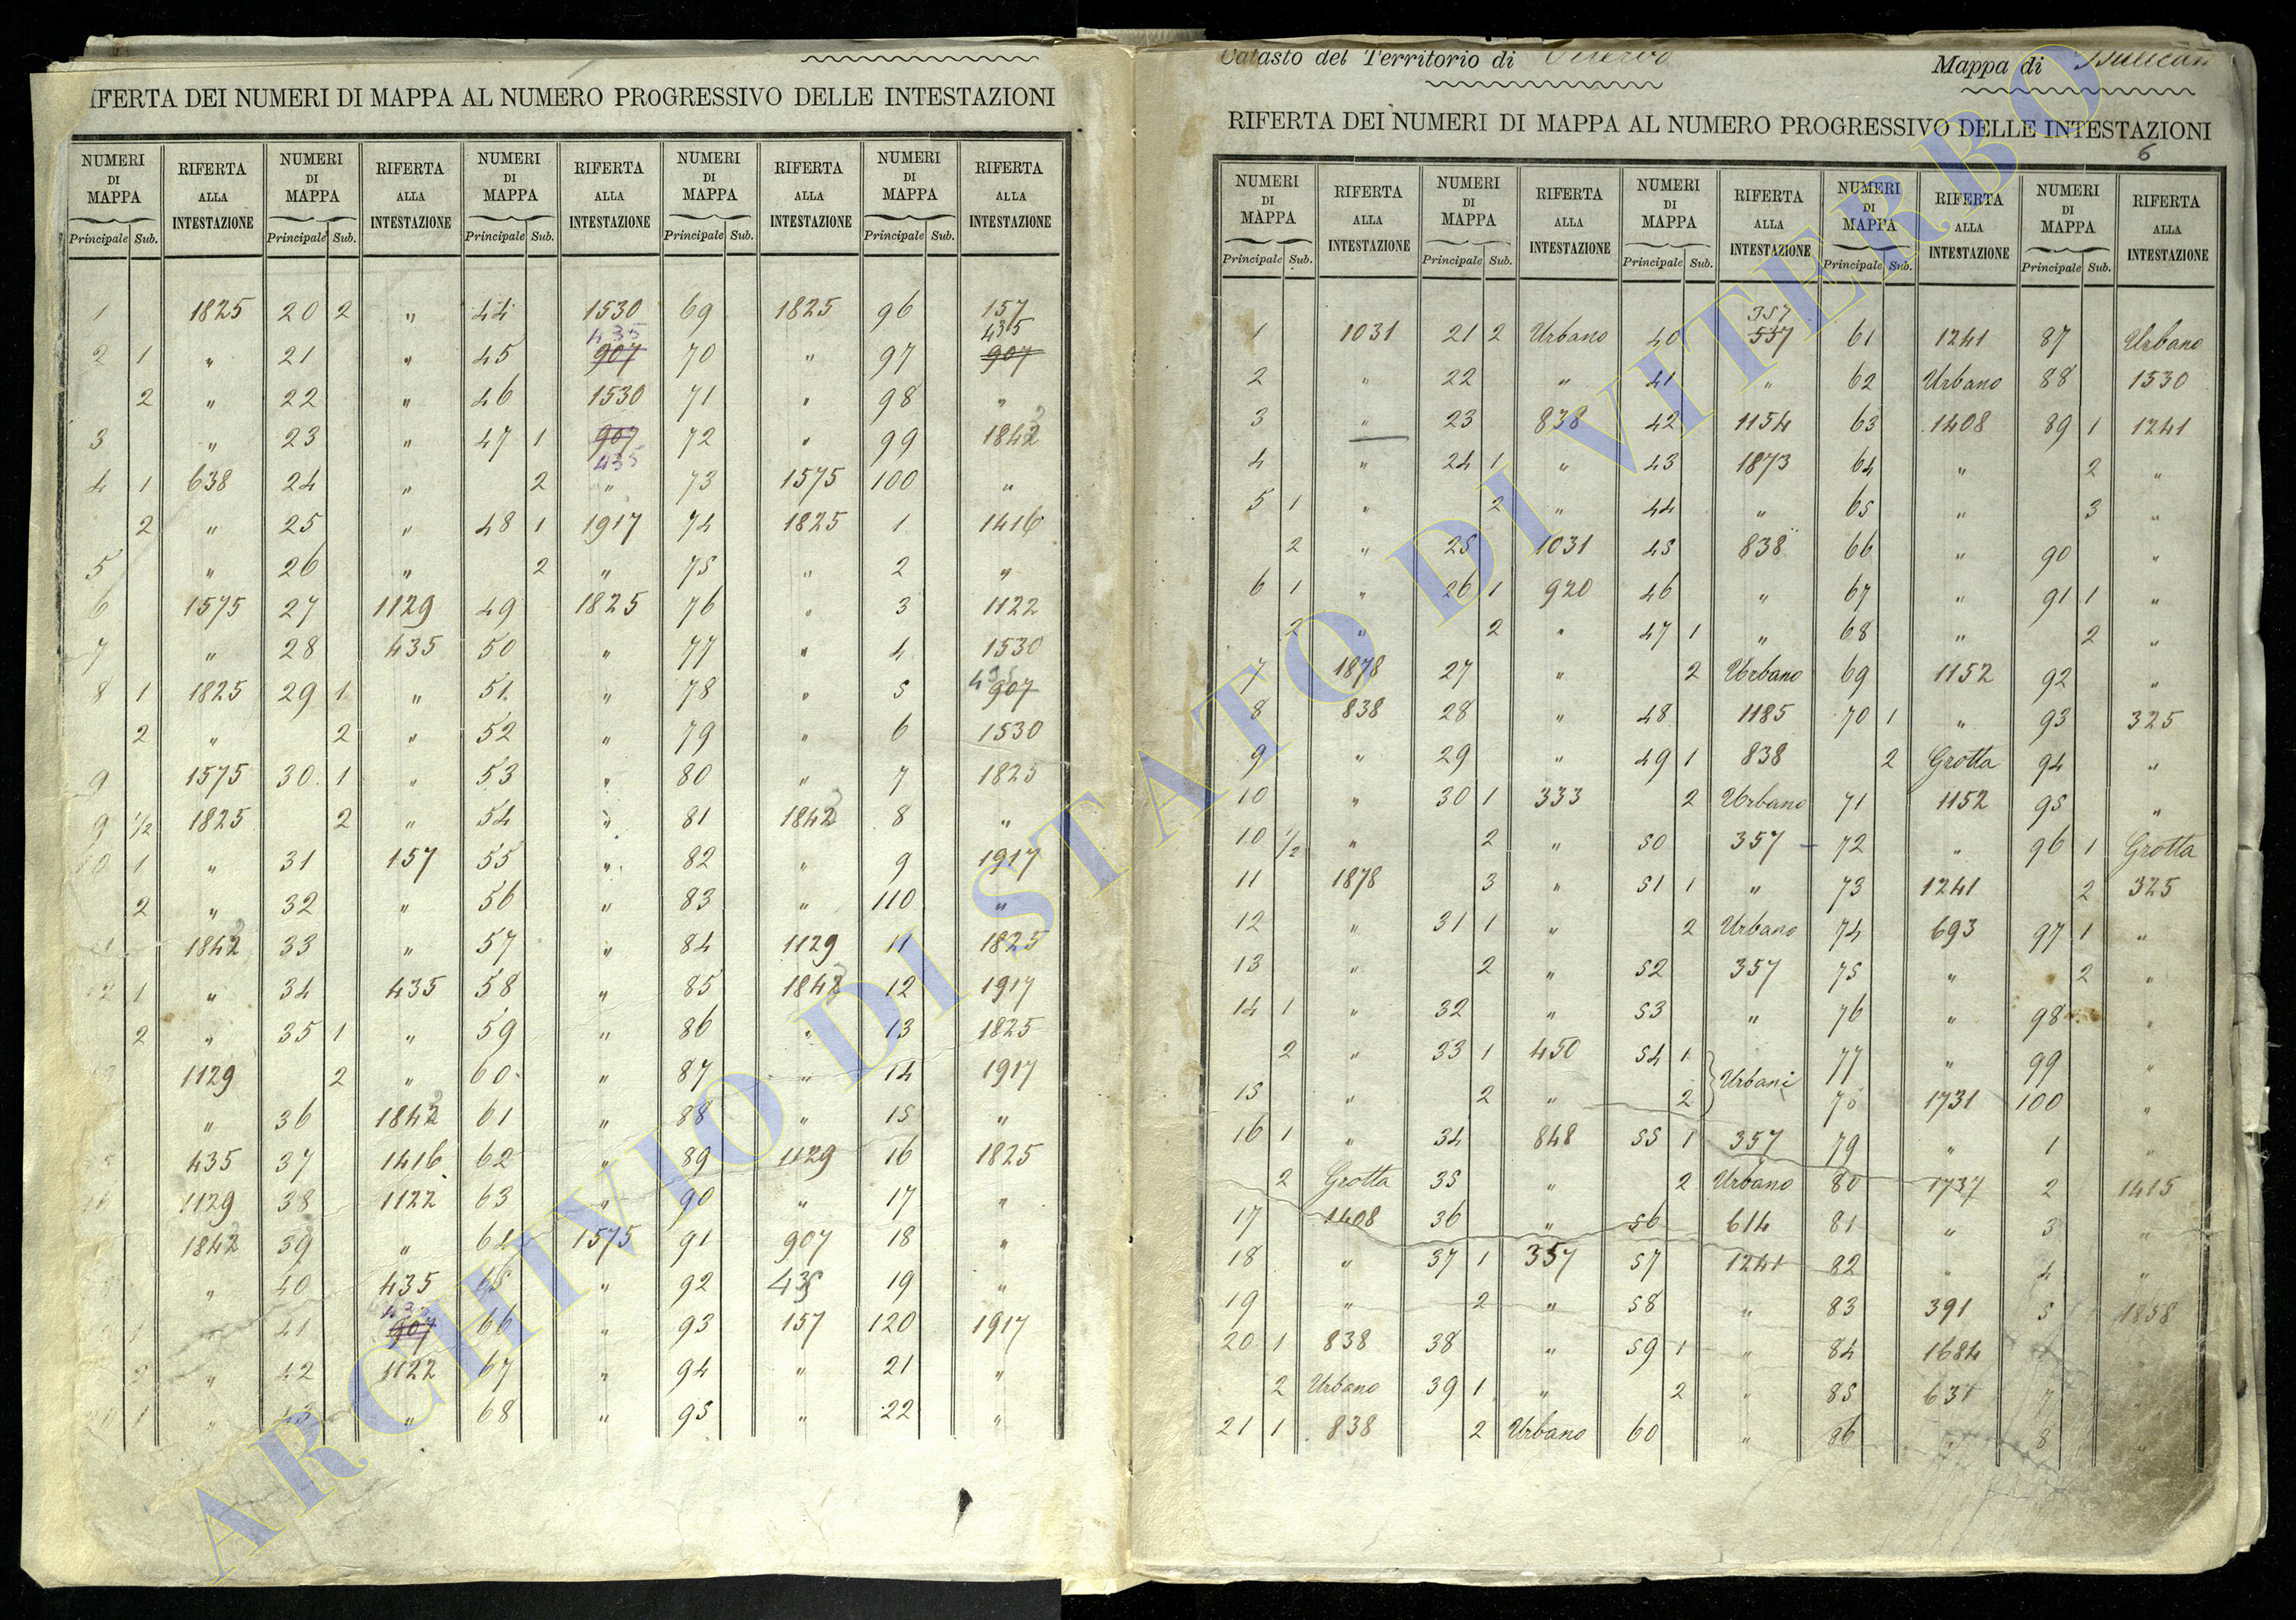 IFERTA DEI NUMERI DI MAPPA AL NUMERO PROGRESSIVO DELLE INTESTAZIONI
NUMERI DI MAPPA RIFERTA ALLA INTESTAZIONE NUMERI DI MAPPA RIFERTA ALLA INTESTAZIONE NUMERI DI MAPPA RIFERTA ALLA INTESTAZIONE NUMERI DI MAPPA RIFERTA ALLA INTESTAZIONE NUMERI DI MAPPA RIFERTA ALLA INTESTAZIONE
Principale Sub. Principale Sub. Principale Sub. Principale Sub. Principale Sub.
1 1825 20 2 " 44 1530 69 1825 96 157
435 435
2 1 " 21 " 45 907 70 " 97 907
2 " 22 " 46 1530 71 " 98 "
3 " 23 " 47 1 907 72 " 99 1842
435
4 1 638 24 " 2 " 73 1575 100 "
2 " 25 " 48 1 1917 74 1825 1 1416
5 " 26 " 2 " 75 " 2 "
6 1575 27 1129 49 1825 76 " 3 1122
7 " 28 435 50 " 77 " 4 1530
8 1 1825 29 1 " 51 " 78 " 5 907
2 " 2 " 52 " 79 " 6 1530
9 1575 30 1 " 53 " 80 " 7 1825
9 1/2 1825 2 " 54 " 81 1842 8 "
10 1 " 31 157 55 " 82 " 9 1917
2 " 32 " 56 " 83 " 110 "
1842 33 " 57 " 84 1129 11 1825
12 1 " 34 435 58 " 85 1842 12 1917
2 " 35 1 " 59 " 86 " 13 1825
1129 2 " 60 " 87 " 14 1917
" 36 1842 61 " 88 " 15 "
435 37 1416 62 " 89 1129 16 1825
1129 38 1122 63 " 90 " 17 "
1842 39 " 64 1575 91 907 18 "
" 40 435 65 " 92 435 19 "
1 " 41 907 66 " 93 157 120 1917
2 " 42 1122 67 " 94 " 21 "
1 " 43 " 68 " 95 " 22 "
Catasto del Territorio di Viterbo Mappa di
RIFERTA DEI NUMERI DI MAPPA AL NUMERO PROGRESSIVO DELLE INTESTAZIONI
6
NUMERI DI MAPPA RIFERTA ALLA INTESTAZIONE NUMERI DI MAPPA RIFERTA ALLA INTESTAZIONE NUMERI DI MAPPA RIFERTA ALLA INTESTAZIONE NUMERI DI MAPPA RIFERTA ALLA INTESTAZIONE NUMERI DI MAPPA RIFERTA ALLA INTESTAZIONE
Principale Sub. Principale Sub. Principale Sub. Principale Sub. Principale Sub.
357
1 1031 21 2 Urbano 40 537 61 1241 87 Urbano
2 " 22 " 41 " 62 Urbano 88 1530
3 " 23 838 42 1154 63 1408 89 1 1241
4 " 24 1 " 43 1873 64 " 2 "
5 1 " 2 " 44 " 65 " 3 "
2 " 25 1031 45 838 66 " 90 "
6 1 " 26 1 920 46 " 67 " 91 1 "
2 " 2 " 47 1 " 68 " 2 "
7 1878 27 " 2 Urbano 69 1152 92 "
8 838 28 " 48 1185 70 1 " 93 325
9 " 29 " 49 1 838 2 Grotta 94 "
10 " 30 1 333 2 Urbano 71 1152 95 "
10 1/2 " 2 " 50 357 72 " 96 1 Grotta
11 1878 3 " 51 1 " 73 1241 2 325
12 " 31 1 " 2 Urbano 74 693 97 1 "
13 " 2 " 52 357 75 " 2 "
14 1 " 32 " 53 " 76 " 98 "
2 " 33 1 450 54 1 Urbani 77 " 99 "
15 " 2 " 2 78 1731 100 "
16 1 " 34 848 55 1 357 79 " 1 "
2 Grotta 35 " 2 Urbano 80 1737 2 1415
17 1408 36 " 56 614 81 " 3 "
18 " 37 1 357 57 1241 82 " 4 "
19 " 2 " 58 " 83 391 5 1858
20 1 838 38 " 59 1 " 84 1684 "
2 Urbano 39 1 " 2 " 85 631 7 "
21 1 838 2 Urbano 60 " 86 " 8 "
ARCHIVIO DI STATO DI VITERBO